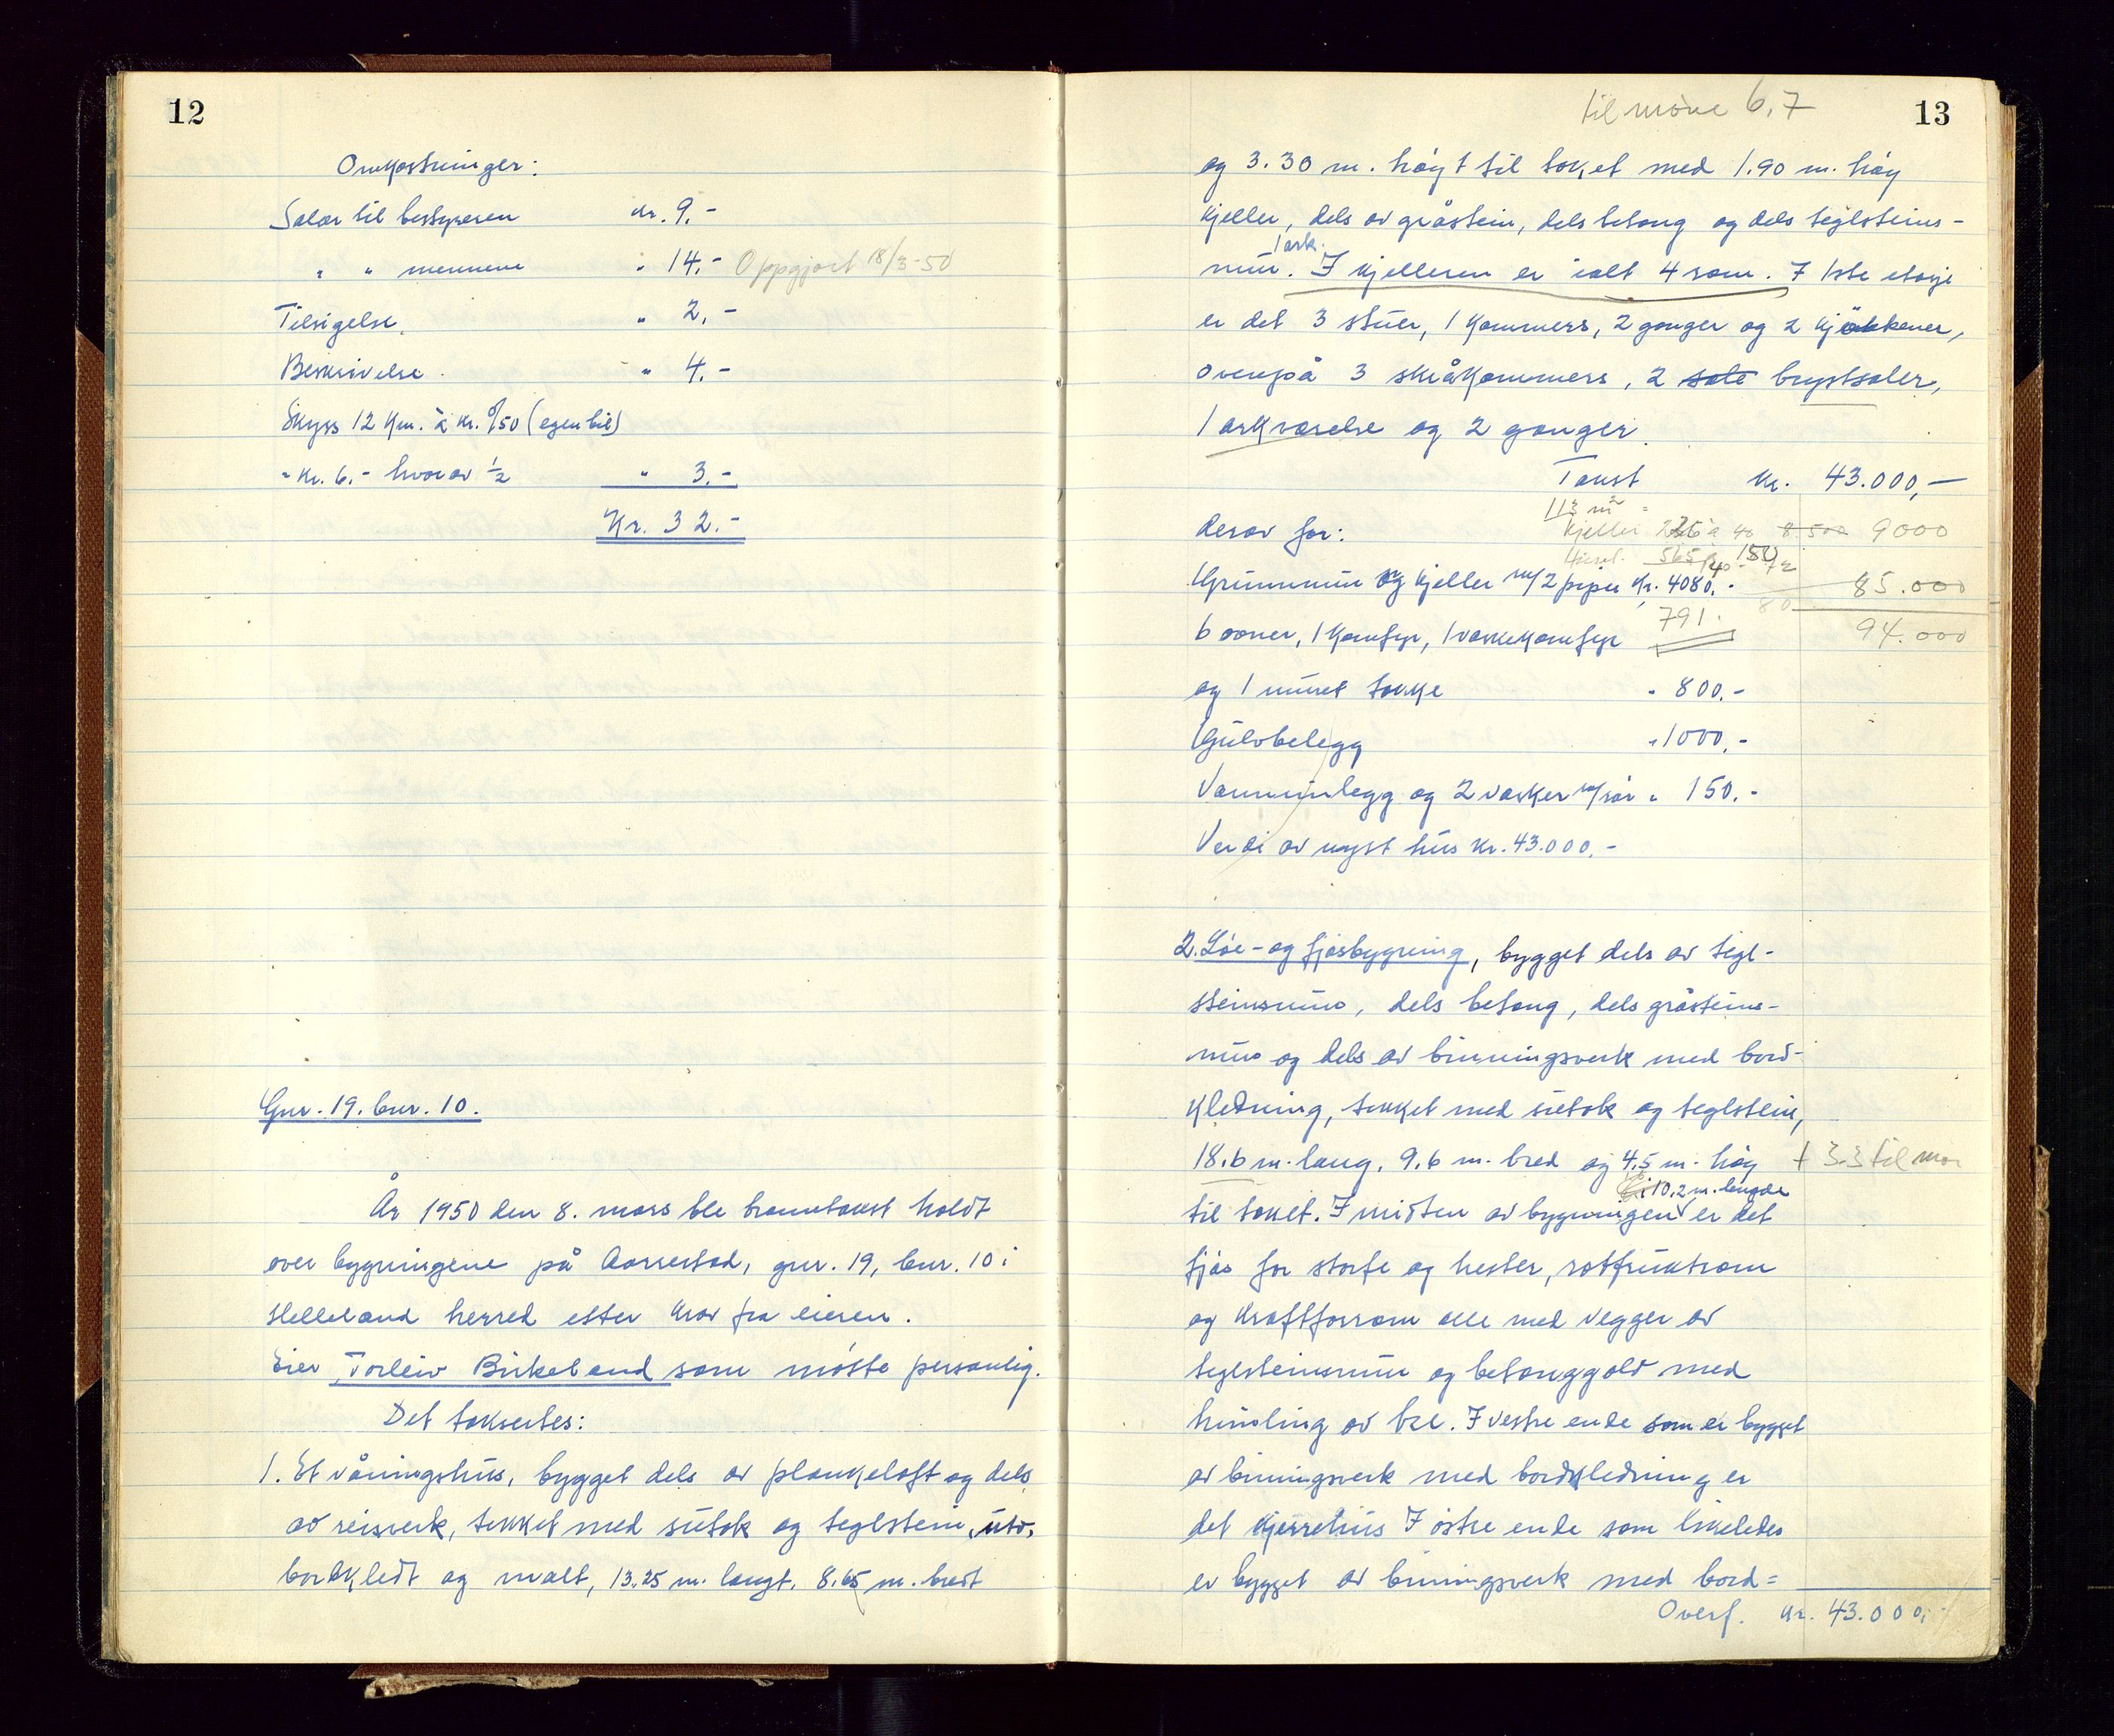 12
Omkostninger:
Salær til bestyreren kr. 9.-
" " mennene " 14.- Oppgjort 18/3-50
Tilsigelse. " 2.-
Beskrivelse. " 4.-
Skyss 12 km. à kr. 0/50 (egen bil)
= kr. 6.- hvorav 1/2 " 3.-
Kr. 32.-
Gnr. 19. bnr. 10.
År 1950 den 8. mars ble branntakst holdt
over bygningene på Aarrestad, gnr. 19, bnr. 10 i
Helleland herred etter krav fra eieren.
Eier Torleiv Birkeland som møtte personlig.
Det taksertes:
1. Et våningshus, bygget dels av plankeloft og dels
av reisverk, tekket med sutak og teglstein, utv.
bordkledt og malt, 13.25 m. langt. 8.65 m. bredt
til møne 6,7
13
og 3.30 m. høgt til taket med 1.90 m. høg
kjeller, dels av gråstein, dels betong og dels teglsteins-
1 ark.
mur. I kjelleren er ialt 4 rom. I 1ste etasje
er det 3 stuer, 1 kammers, 2 ganger og 2 kjøkkener,
ovenpå 3 skråkammers, 2 sale brystsaler,
1 arkværelse og 2 ganger.
Takst kr. 43.000,-
113 m²
derav for: Kjeller 226 à 40 8.500 9000
565 150
Grunnmur og kjeller m/2 piper kr. 4080.- 85.000
80
6 ovner, 1 komfyr, 1 vaskekomfyr 791. 94.000
og 1 muret takke " 800.-
Gulvbelegg " 1000.-
Vanninnlegg og 2 vasker m/rør " 150.-
Verdi av nytt hus kr. 43.000.-
2. Løe- og fjøsbygning, bygget dels av tegl-
steinsmur, dels betong, dels gråsteins-
mur og dels av binningsverk med bord-
kledning, tekket med sutak og teglstein,
18.6 m. lang. 9.6 m. bred og 4,5 m. høg + 3.3 til møn
i 10.2 m. lengde
til taket. I midten av bygningen er det
fjøs for storfe og hester, rotfruktrom
og kraftforrom alle med vegger av
teglsteinsmur og betonggolv med
himling av tre. I vestre ende som er bygget
av binningsverk med bordkledning er
det kjerrehus I østre ende som likeledes
er bygget av binningsverk med bord=
Overf. kr. 43.000,-